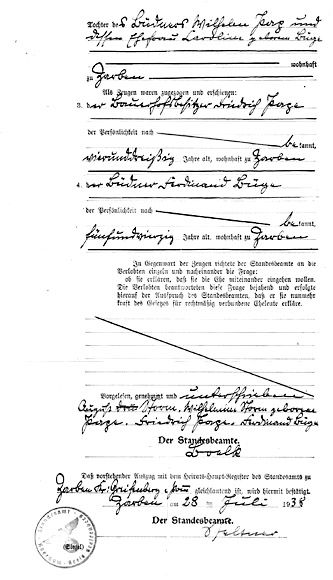 Tochter des Büdners Wilhelm Page und
dessen Ehefrau Caroline geborene Büge
wohnhaft
zu Zarben
Als Zeugen waren zugezogen und erschienen:
3. der Bauerhofsbesitzer Friedrich Page
der Persönlichkeit nach
bekannt,
vierunddreißig Jahre alt, wohnhaft zu Zarben
4. der Büdner Ferdinand Büge
der Persönlichkeit nach
bekannt,
fünfundvierzig Jahre alt, wohnhaft zu Zarben
In Gegenwart der Zeugen richtete der Standesbeamte an die
Verlobten einzeln und nacheinander die Frage:
ob sie erklären, daß sie die Ehe miteinander eingehen wollen.
Die Verlobten beantworteten diese Frage bejahend und erfolgte
hierauf der Ausspruch des Standesbeamten, daß er sie nunmehr
kraft des Gesetzes für rechtmäßig verbundene Eheleute erkläre.
Vorgelesen, genehmigt und unterschrieben
August Storm. Wilhelmine Storm geborene
Page. Friedrich Page. Ferdinand Büge
Der Standesbeamte.
Daß vorstehender Auszug mit dem Heirats-Haupt-Register des Standesamts zu
Zarben Kr. Greifenberg Pom gleichlautend ist, wird hiermit bestätigt.
Zarben am 28 ten Juli 1938
Der Standesbeamte.
(Siegel)